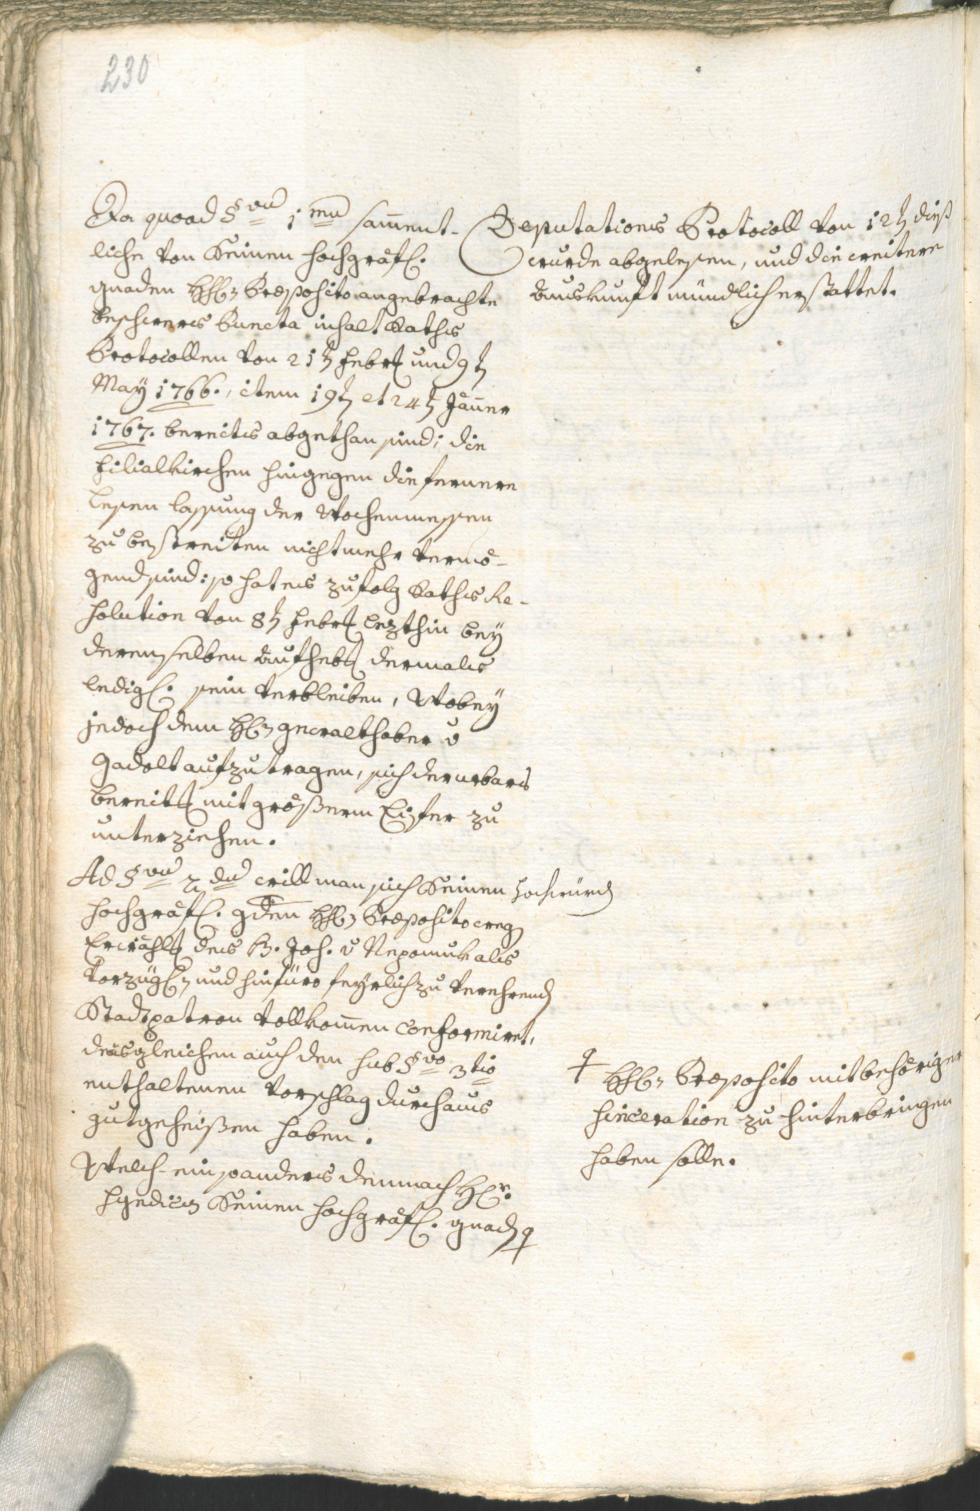 230
Da quoad §vum 1mum sam̄ent-
liche von Seinen hochgräfl.
gnaden HH: Præposito angebrachte
beschwers Puncta inhalt Raths
Protocollen von 21t Febr und 9t
May 1766., item 19t et 24t Jäner
1767. bereits abgethan sind; die
Filialkirchen hingegen die fernere
lesen lassung der Wochenmessen
zu bestreiten nicht mehr vermö-
gend sind: so hat es zufolg Raths Re-
solution von 8t Febr lezthin bey
derenselben aufheb dermals
ledigl. sein verbleiben, Wobey
jedoch dem HH:
Gadolt aufzutragen, sich der urbars
bereit mit größerm Eyfer zu
unterziehen.
Ad §vum 2dum will man sich Seinen Hochwürd
hochgräfl. gden HH: Præposito weg
Erwählt des H. Joh. v Nepomuk als
vorzügl: und hinfüro feyrlich zu verehrend
Stadtpatron vollkom̄en conformiret,
desgleichen auch den sub §vo 3tio
enthaltenen Vorschlag durchaus
gutgeheißen haben.
Welch-ein so anders demnach Hr.
Syndicus Seinen hochgräfl. gnad
Deputations Protocoll von 12t diß
wurde abgelesen, und die weitere
Auskunft mündlich erstattet.
HH: Præposito mit behöriger
Sinceration zu hinterbringen
haben solle.